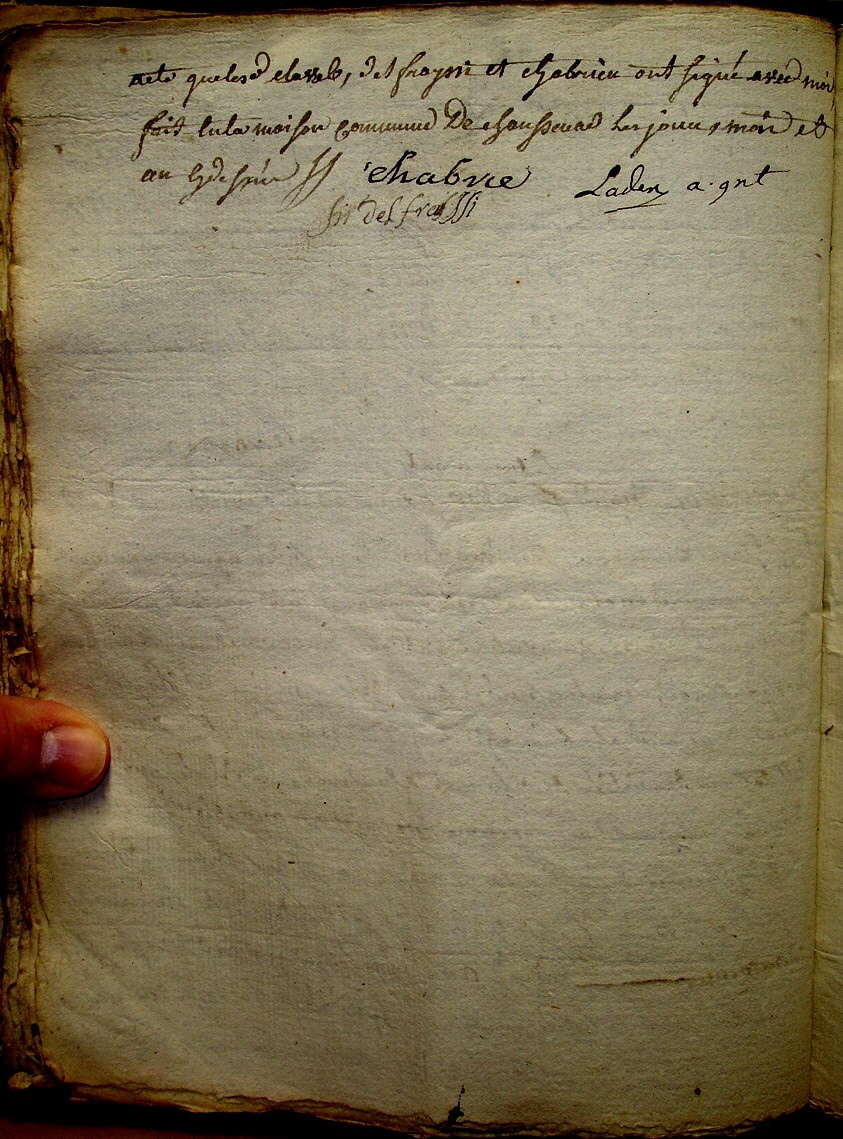 acte que les d Clavel, delfraysse et chabrieu ont signé avec moi
fait en la maison commune De chaussenac les jour, moir et
an ly dessus
chabrie Laden a.gnt
delfraissi